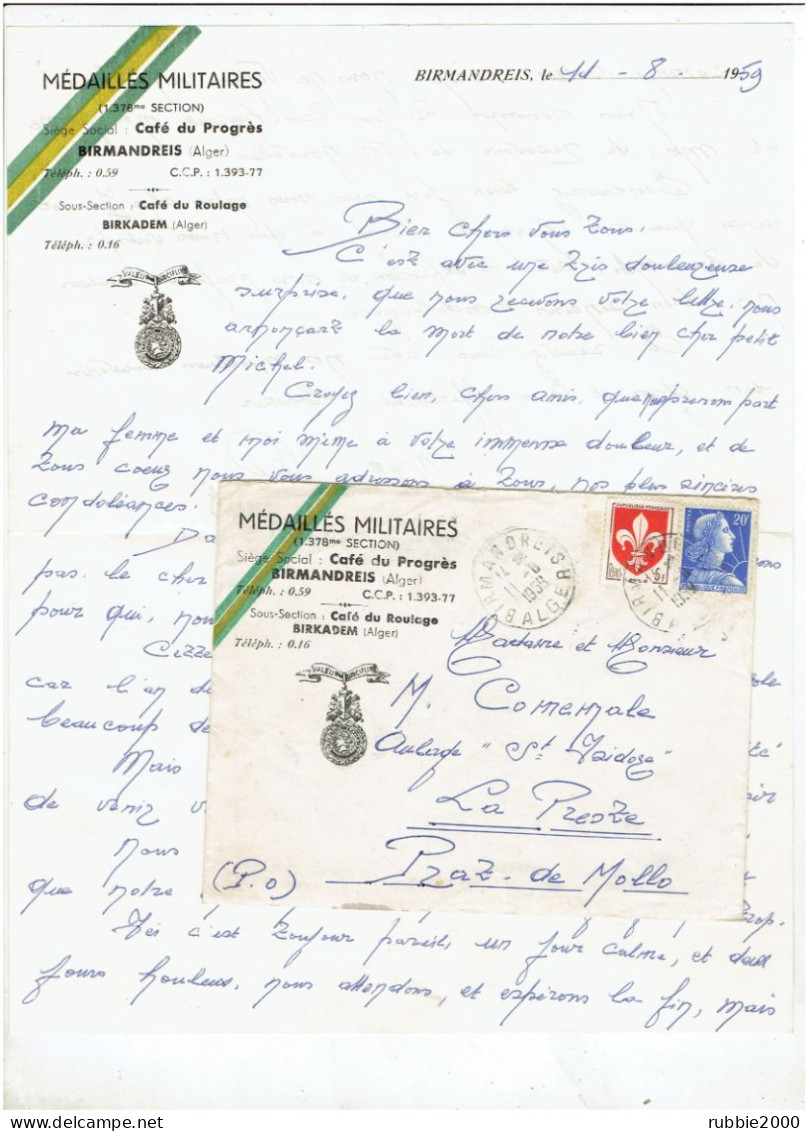 MÉDAILLÉS MILITAIRES
(1.378me SECTION)
Siège Social : Café du Progrès
BIRMANDREIS (Alger)
Téléph. : 0.59 C.C.P. : 1.393-77
Sous-Section : Café du Roulage
BIRKADEM (Alger)
Téléph. : 0.16
VALEUR DISCIPLINE
BIRMANDREIS, le 11 - 8 - 1959
Bien chers vous tous.
C'est avec une très douloureuse
surprise, que nous recevons votre lettre, nous
annonçant la mort de notre bien cher petit
Michel.
Croyez bien, chers amis, que prenons part
ma femme et moi même à votre immense douleur, et de
tous coeur nous vous adressons à tous, nos plus sincères
condoléances.
pas. le cher
pour qui, nou
Cette
car l'an de
beaucoup de
Mais
de venir v
nous
que notre
Ici c'est toujour pareil, un jour calme, et deux
jours houleux, nous attendons, et espérons la fin, mais
MÉDAILLÉS MILITAIRES
(1.378me SECTION)
Siège Social : Café du Progrès
BIRMANDREIS (Alger)
Téléph. : 0.59 C.C.P. : 1.393-77
Sous-Section : Café du Roulage
BIRKADEM (Alger)
Téléph. : 0.16
VALEUR DISCIPLINE
BIRMANDREIS
ALGER
REPUBLIQUE FRANÇAISE
5F
POSTES
20F
Madame et Monsieur
M. Comemale
"St Isidore"
La Preste
Praz. de Mollo
(P.O)
rubbie2000